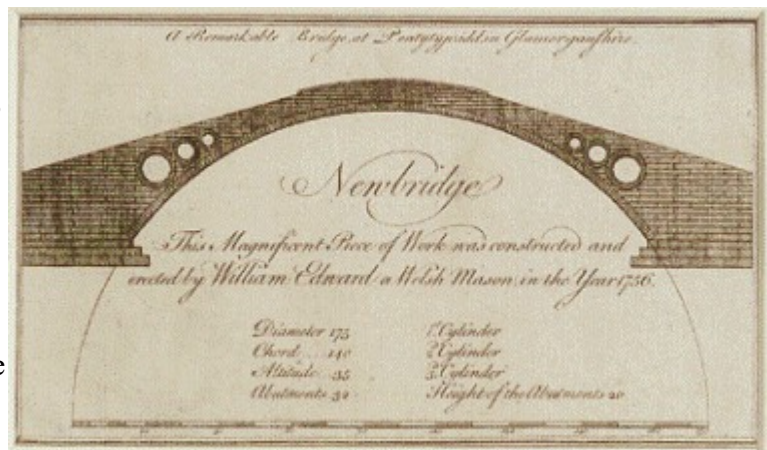 A Remarkable Bridge, at Pontytypridd, in Glamorganshire.
Newbridge
This Magnificent Piece of Work was constructed and
erected by William Edward a Welsh Mason, in the Year 1756.
Diameter 175
Chord ... 140
Altitude .. 35
Abutments 32
1st Cylinder
2d Cylinder
3d Cylinder
Height of the Abutments 20
e